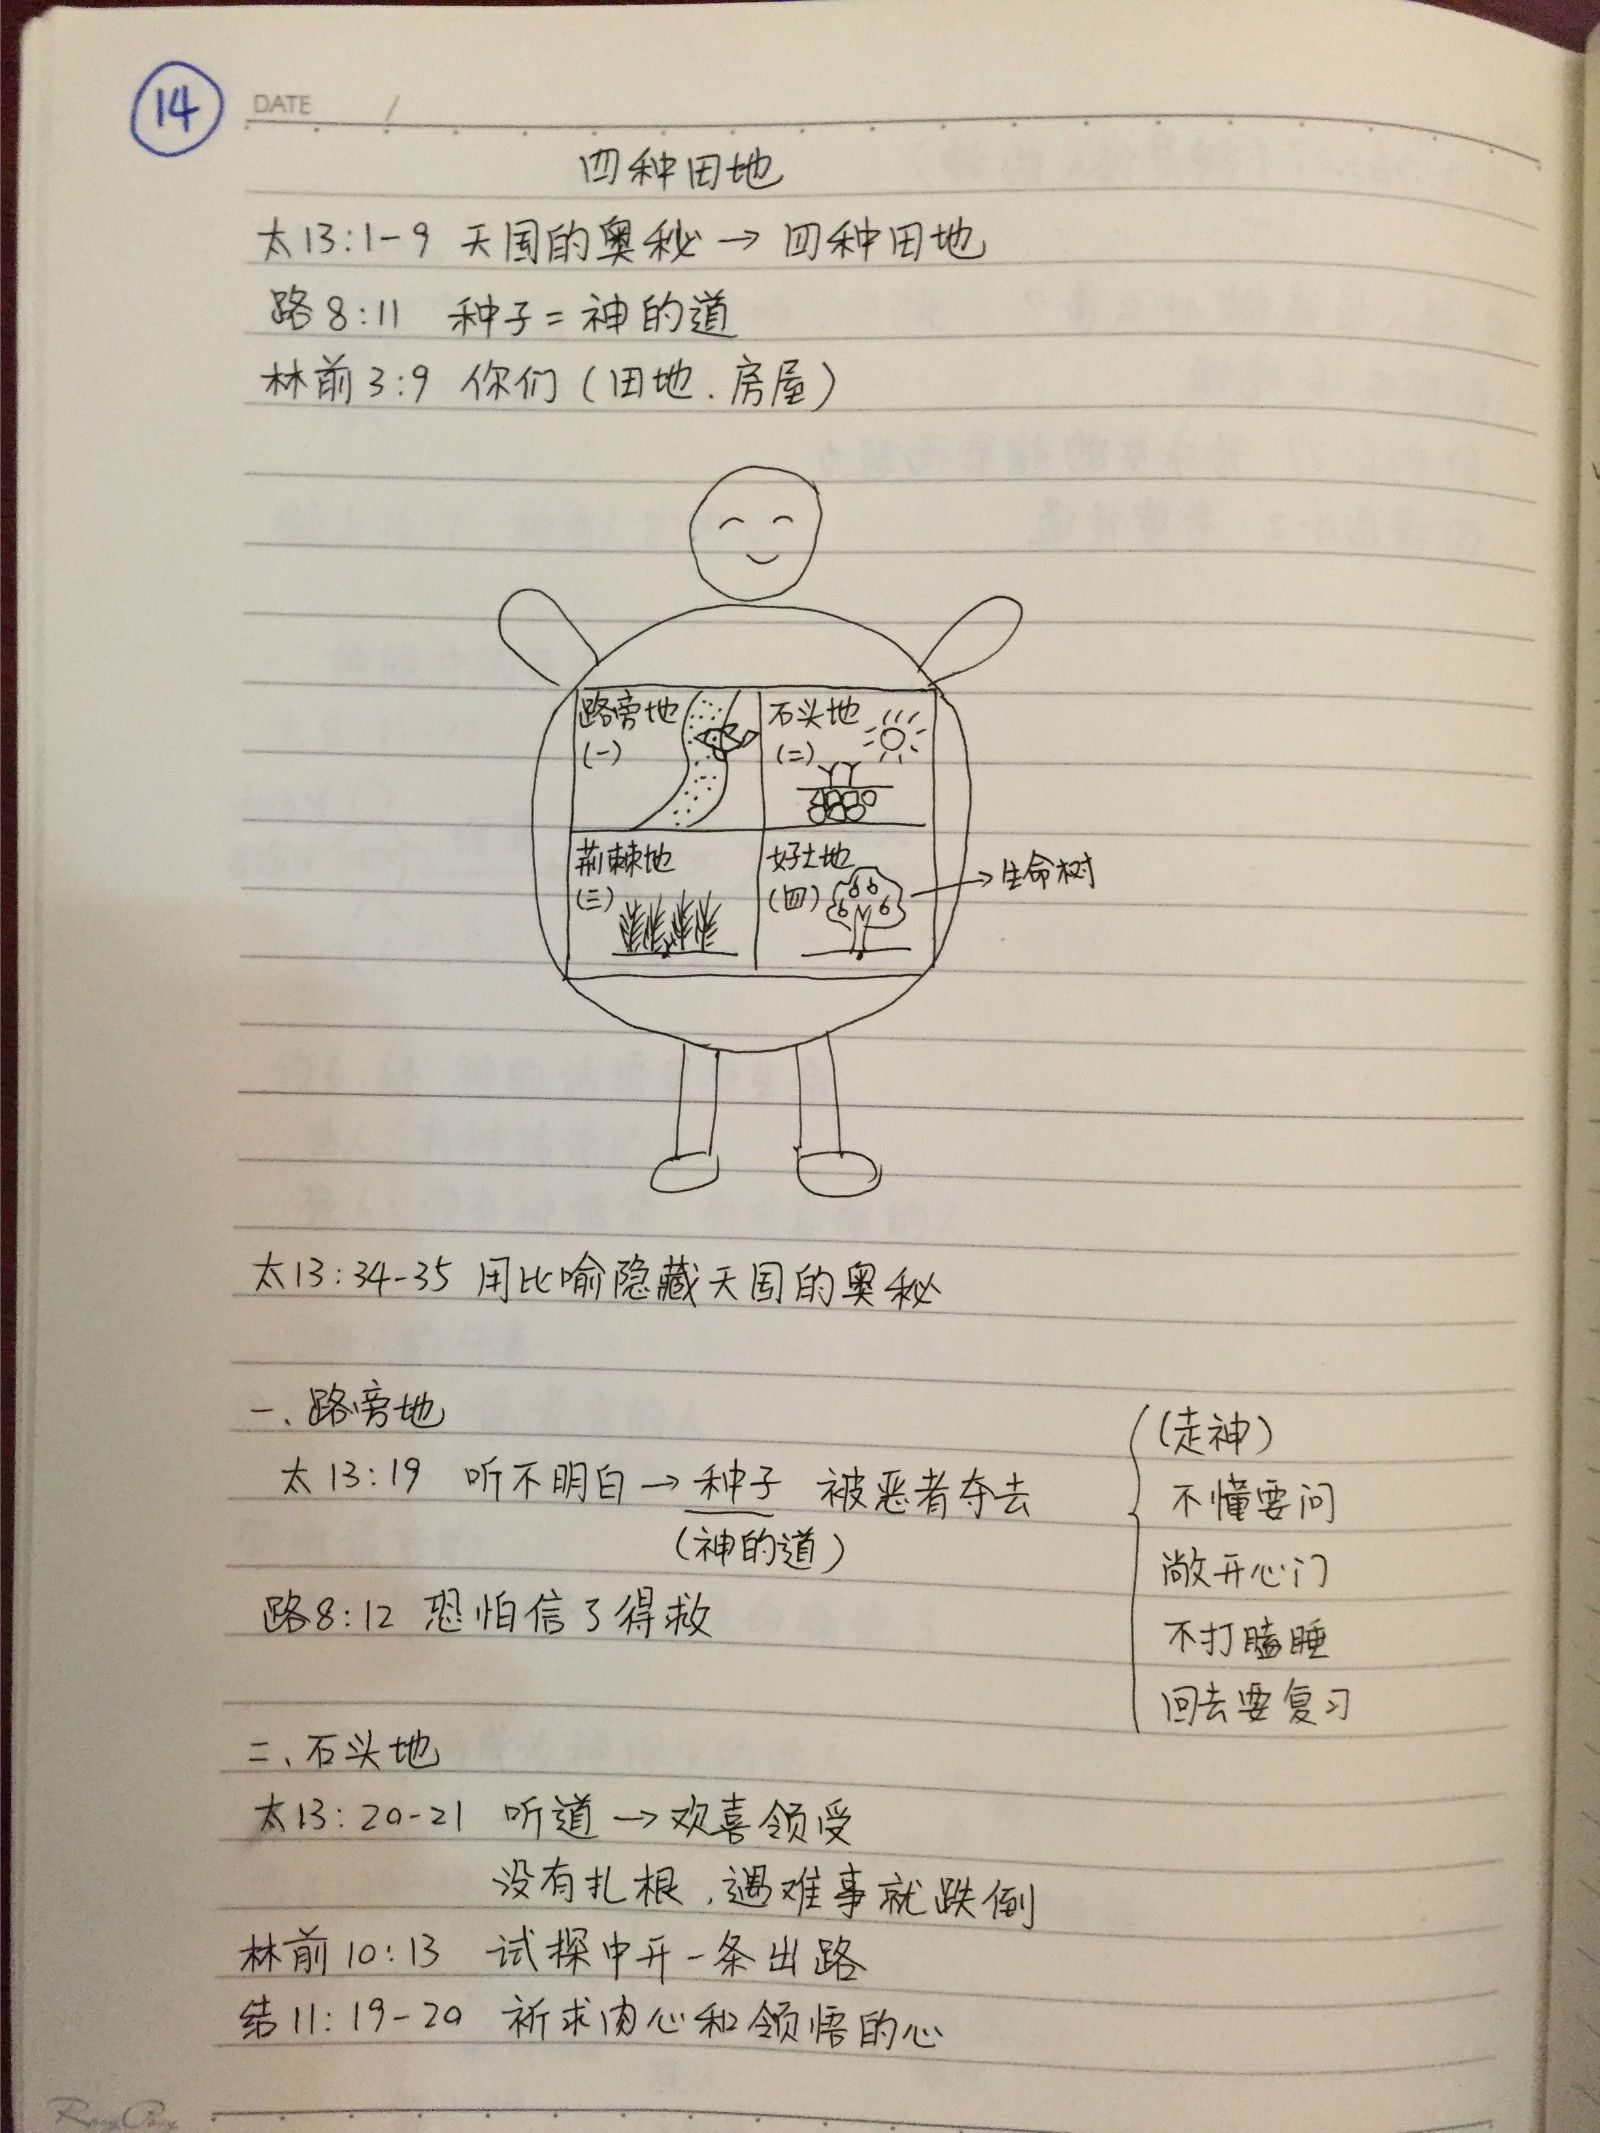 14
DATE /
四种田地
太13:1-9 天国的奥秘→四种田地
路8:11 种子=神的道
林前3:9 你们(田地.房屋)
路旁地
(一)
石头地
(二)
荆棘地
(三)
好土地
(四)
→生命树
太13:34-35 用比喻隐藏天国的奥秘
一、路旁地
太13:19 听不明白→种子 被恶者夺去
(神的道)
路8:12 恐怕信了得救
(走神)
不懂要问
敞开心门
不打瞌睡
回去要复习
二、石头地
太13:20-21 听道→欢喜领受
没有扎根,遇难事就跌倒
林前10:13 试探中开一条出路
结11:19-20 祈求肉心和领悟的心